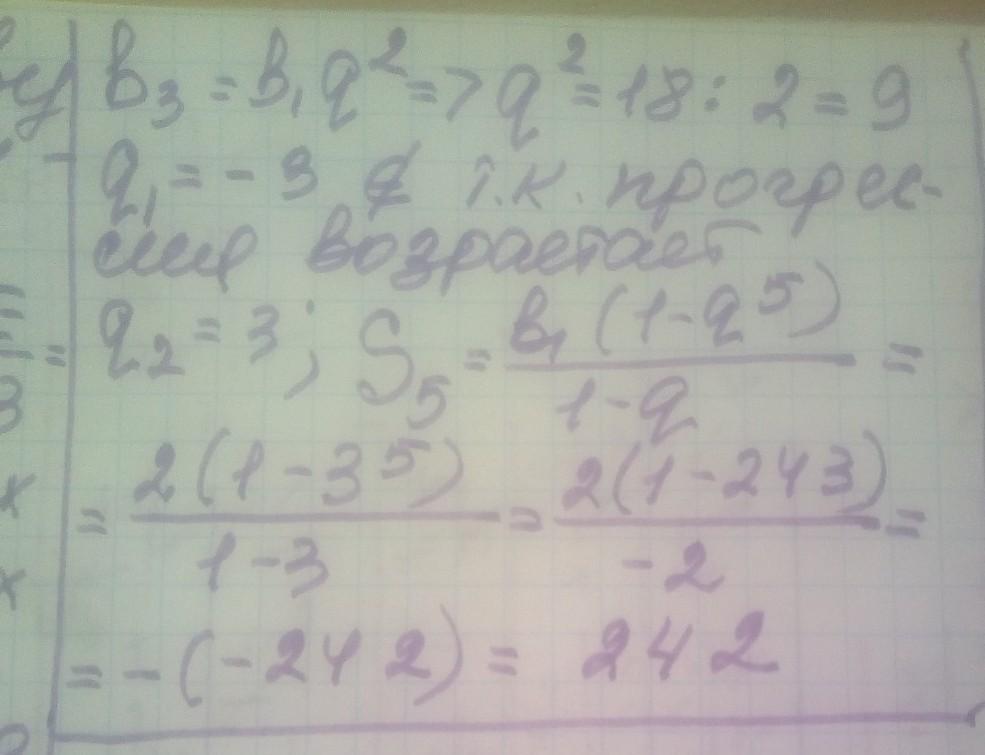 b₃ = b₁q² => q² = 18 : 2 = 9
q₁ = - 3 ∉ т.к. прогрес-
сия возрастает
q₂ = 3; S₅ = b₁(1-q⁵)/(1-q) =
= 2(1-3⁵)/(1-3) = 2(1-243)/(-2) =
= -(-242) = 242